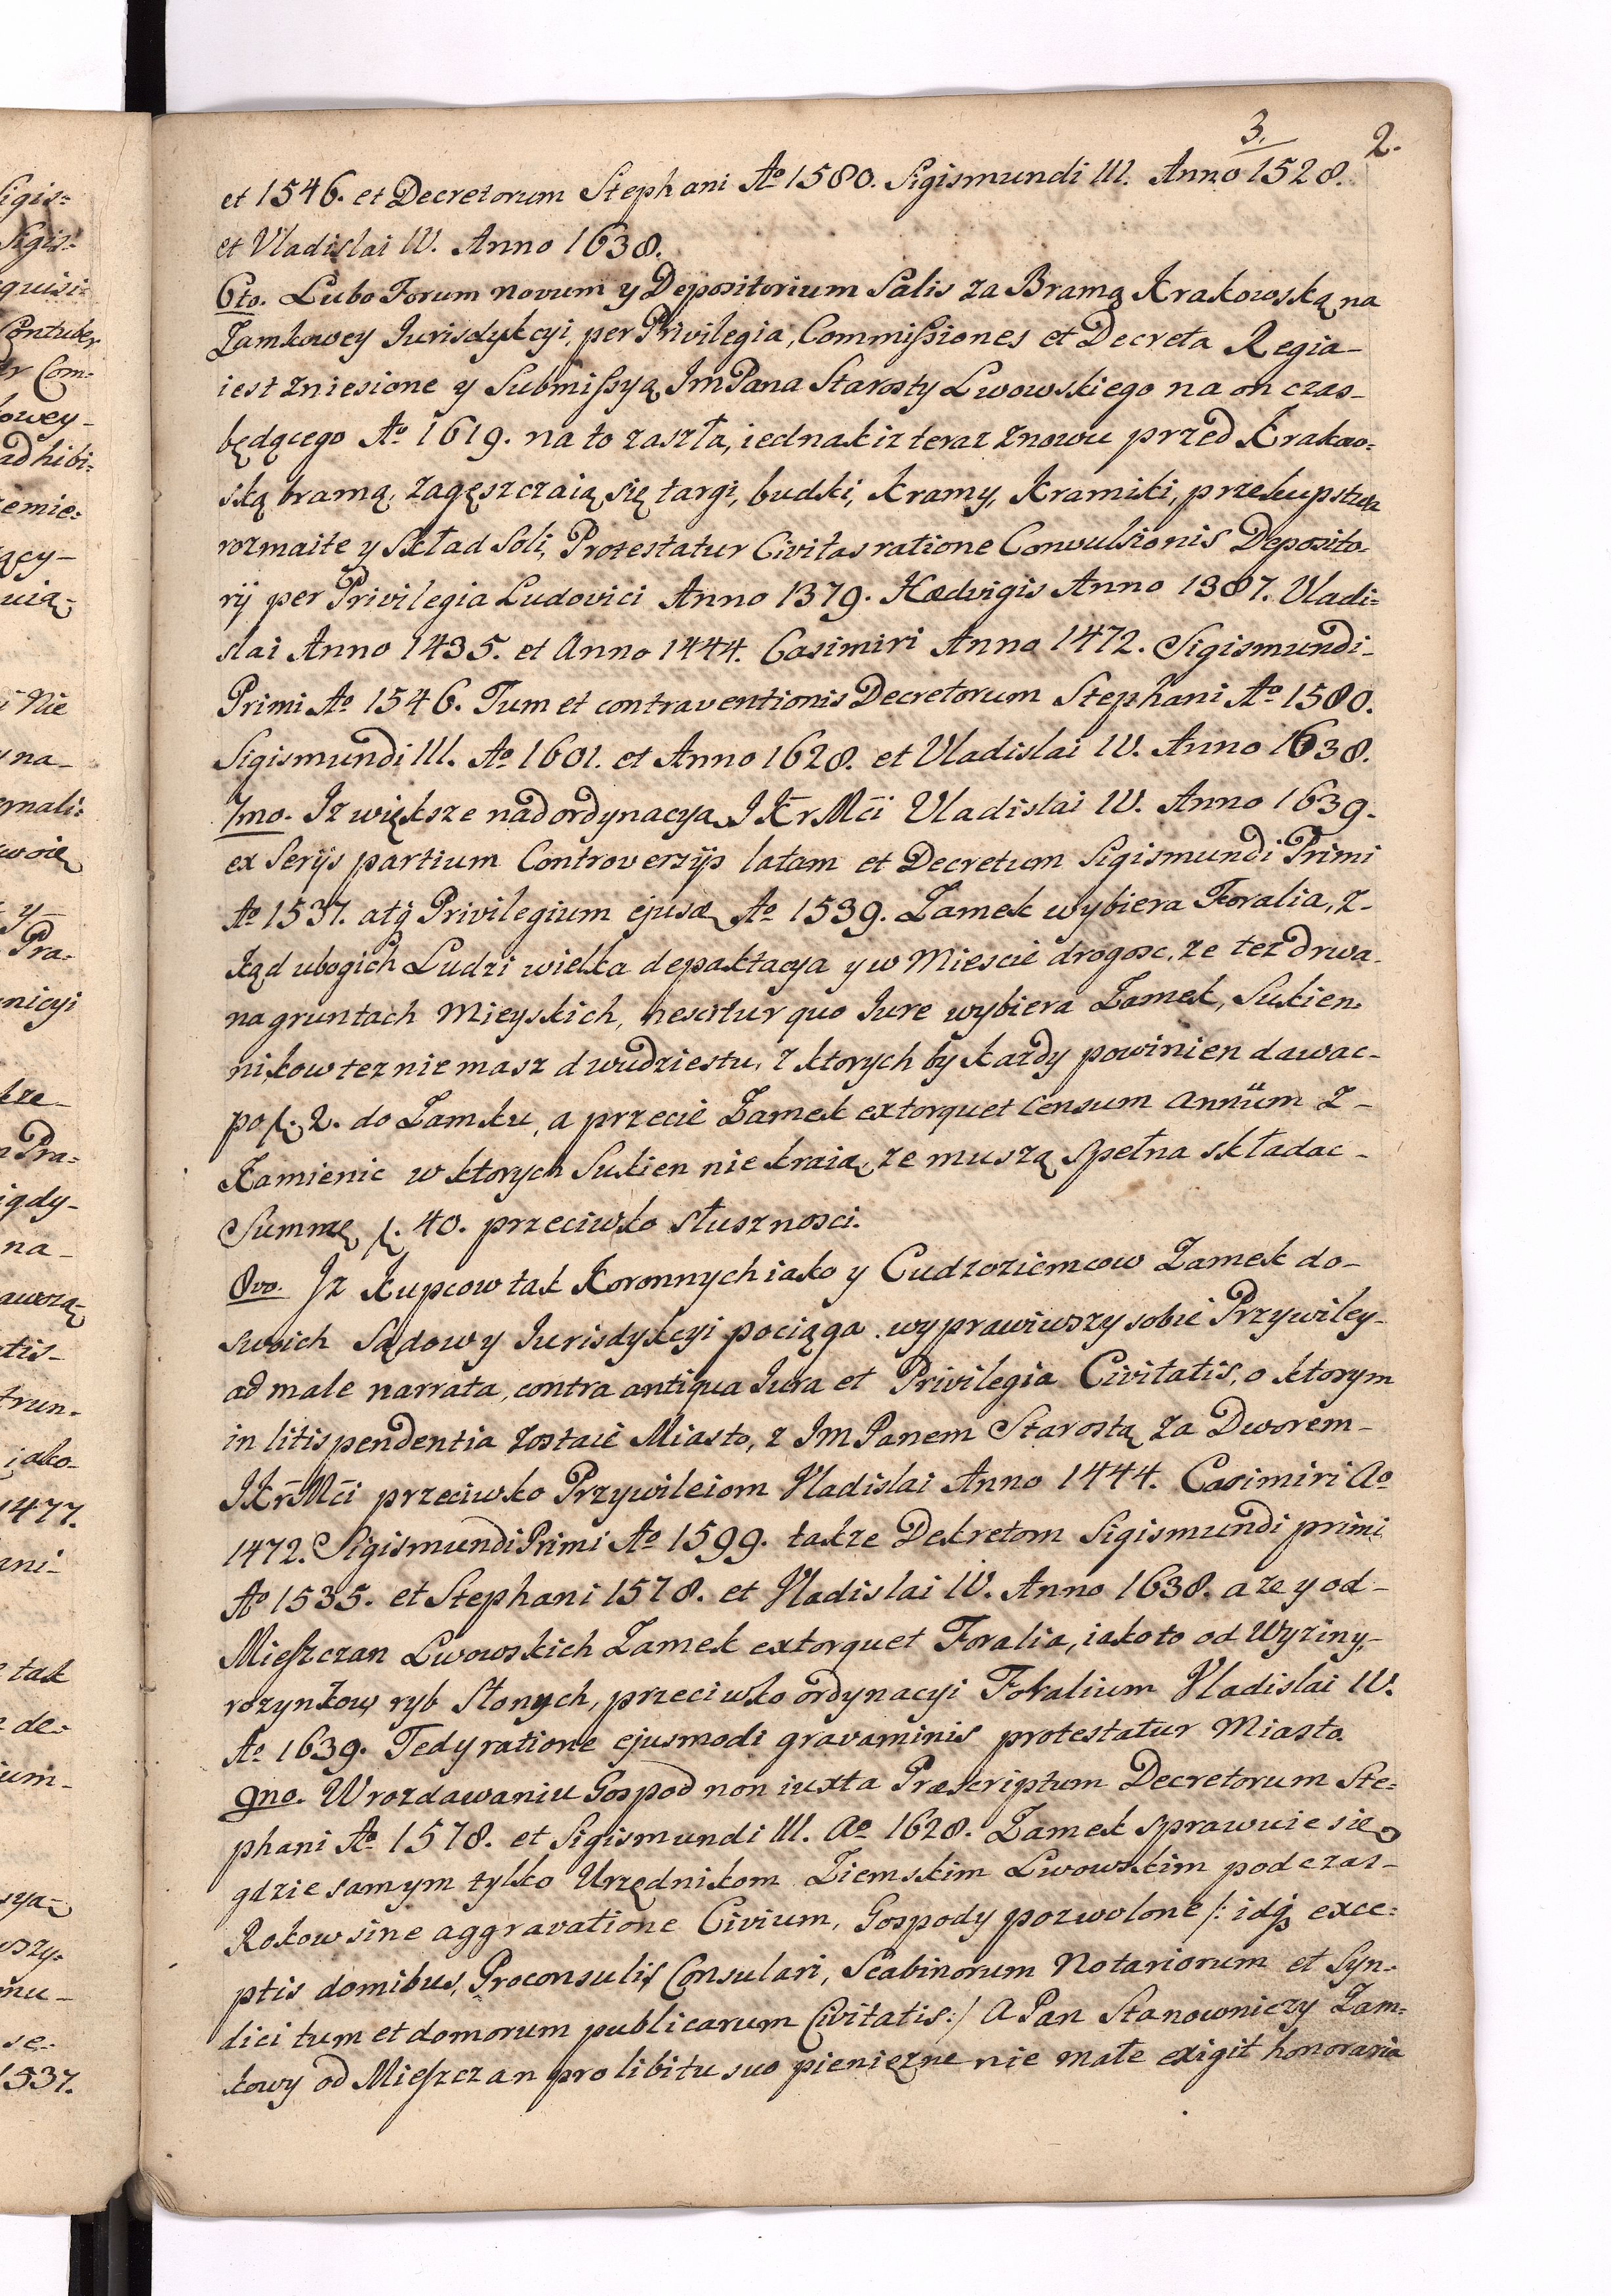 3. 2.
et 1546. et Decretorum Stephani Aº 1580. Sigismundi III. Anno 1528.
et Vladislai IV. Anno 1638.
6to. Lubo Forum novum y Depositorium Salis za Bramą Krakowską na
Zamkowey Jurisdykcyi, per Privilegia, Commissiones et Decreta Regia-
iest zniesione y Submissyą JmPana Starosty Lwowskiego na on czas-
będącego Aº 1619. na to zaszła, iednak iz teraz znowu przed Krakow-
ską bramą, zagęszczaią się targi, budki, Kramy, Kramiki, przekupstwa
rozmaite y Skład Soli, Protestatur Civitas ratione Convulsionis Deposito-
rij per Privilegia Ludovici Anno 1379. Hædvigis Anno 1387. Vladi=
slai Anno 1435. et Anno 1444. Casimiri Anno 1472. Sigismundi-
Primi Aº 1546. Tum et contraventionis Decretorum Stephani Aº 1580.
Sigismundi III. Aº 1601. et Anno 1628. et Vladislai IV. Anno 1638.
7mo. Iz większe nad ordynacyą J Kr Mci Vladislai IV. Anno 1639.
ex Serijs partium Controversijs latam et Decretum Sigismundi Primi
Aº 1537. atq Privilegium ejusd Aº 1539. Zamek wybiera Foralia, z-
kąd ubogich Ludzi wielka depaktacya y w Miescie drogosc, ze tez drwa-
na gruntach Mieyskich, nescitur quo Jure wybiera Zamek, Sukien-
nikow tez nie masz dwudziestu, z ktorych by kazdy powinien dawac-
po f. 2. do Zamku, a przecie Zamek extorquet Censum annuum z-
Kamienic w ktorych Sukien nie kraią, ze muszą spełna składac-
Summę f. 40. przeciwko słusznosci.
8vo. Iz Kupcow tak Koronnych iako y Cudzoziemcow Zamek do-
swoich Sądow y Jurisdykcyi pociąga wyprawiwszy sobie Przywiley-
ad male narrata, contra antiqua Jura et Privilegia Civitatis, o ktorym
in litispendentia zostaie Miasto, z Jm Panem Starostą za Dworem-
JKrMci przeciwko Przywileiom Vladislai Anno 1444. Casimiri Aº
1472. Sigismundi Primi Aº 1599. takze Dekretom Sigismundi primi
Aº 1535. et Stephani 1578. et Vladislai IV. Anno 1638. a ze y od-
Mieszczan Lwowskich Zamek extorquet Foralia, iako to od Wyziny,-
rozynkow, ryb Słonych, przeciwko ordynacyi Foralium Vladislai IV.
Aº 1639. Tedy ratione ejusmodi gravaminis protestatur Miasto.
9no. W rozdawaniu Gospod non iuxta Præscriptum Decretorum Ste=
phani Aº 1578. et Sigismundi III. Aº 1628. Zamek sprawuie się
gdzie samym tylko Urzędnikom Ziemskim Lwowskim podczas-
Rokow sine aggravatione Civium, Gospody pozwolone /: idq exce=
ptis domibus, Proconsulis Consulari, Scabinorum Notariorum et Syn=
dici tum et domorum publicarum Civitatis :/ A Pan Stanowniczy Zam=
kowy od Mieszczan pro libitu suo pieniezne nie małe exigit honoraria